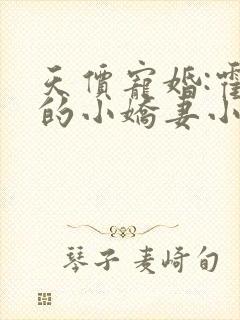 天價寵婚:霍
的小嬌妻小
琴子麦崎旬